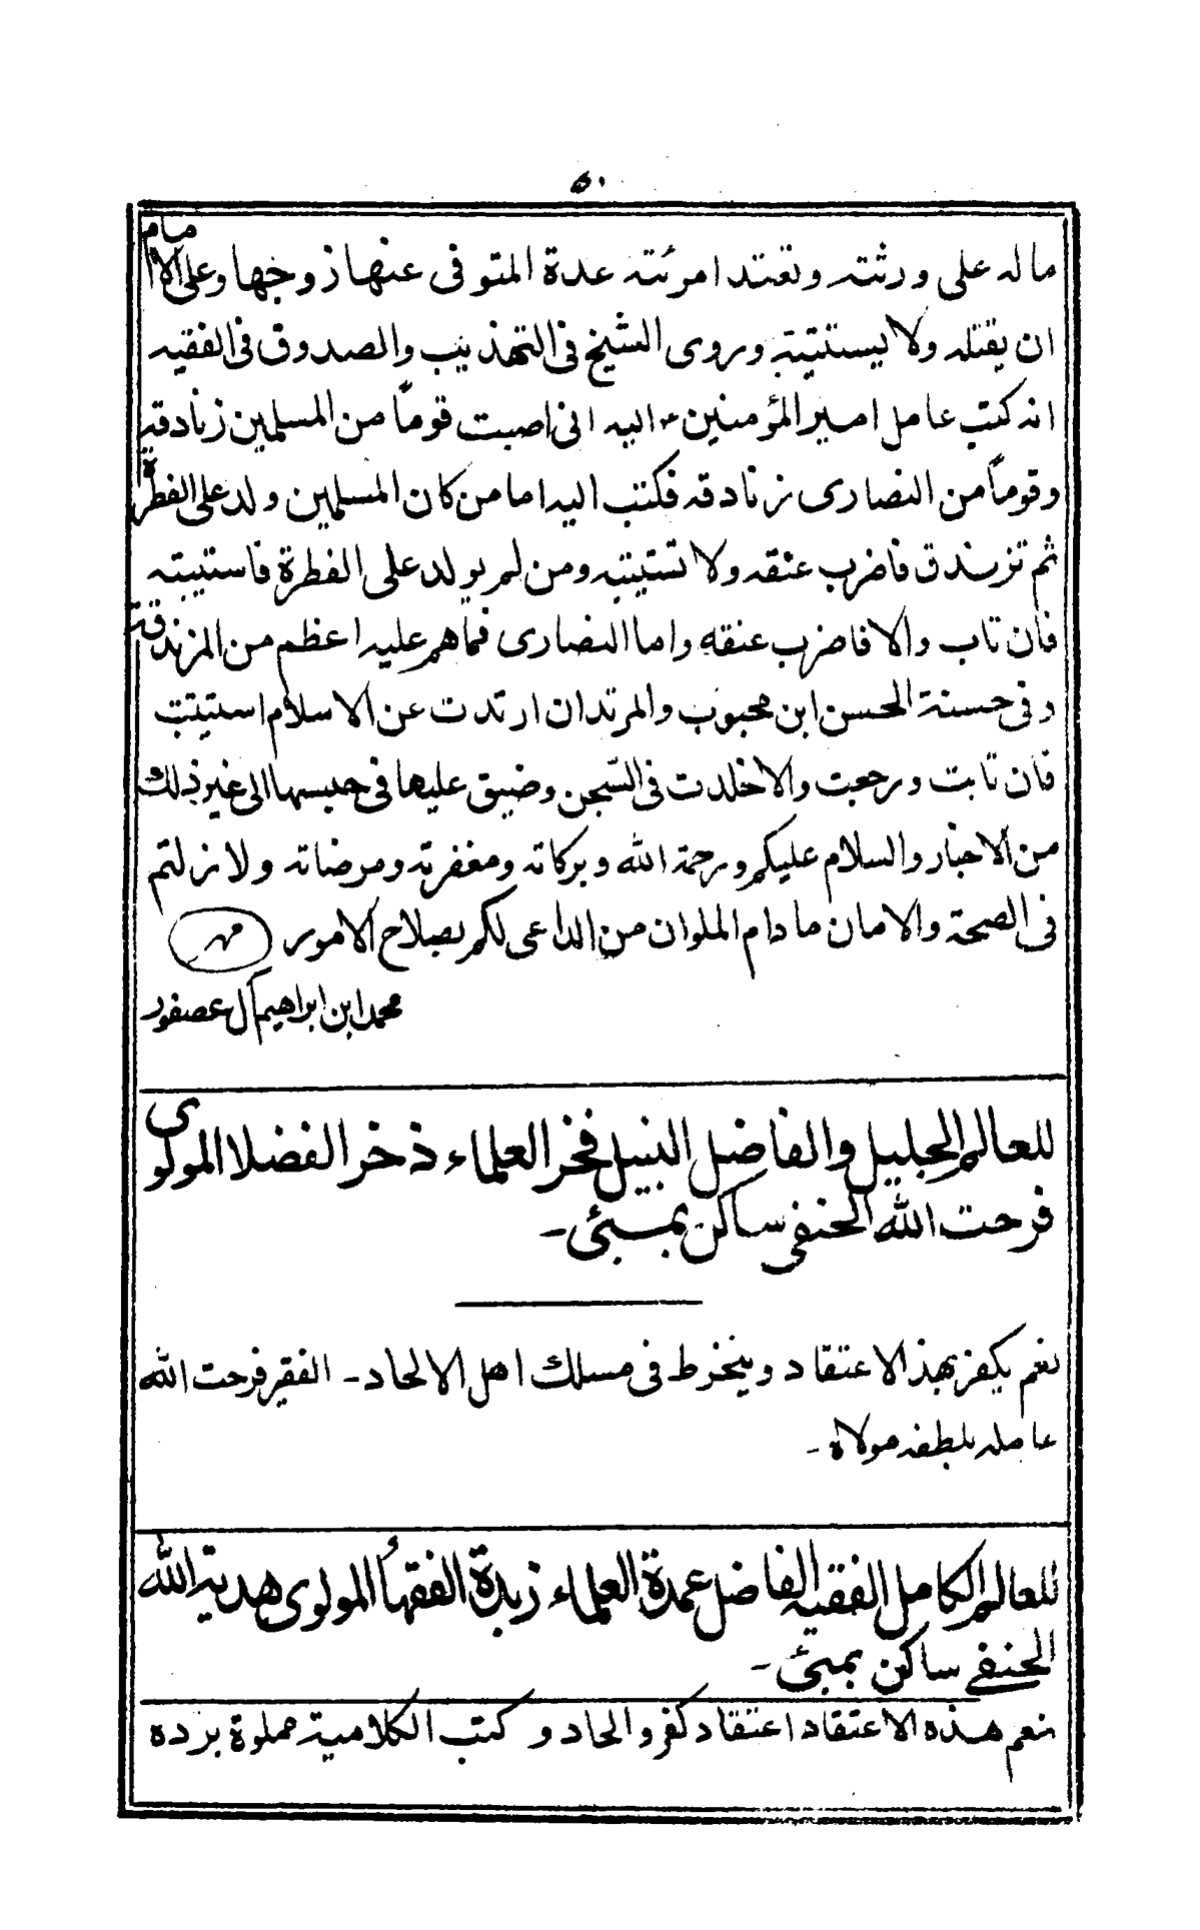 ٥٠
ماله على ورثته وتعتد امرئته عدة المتوفى عنها زوجها وعلى الامام
ان يقتله ولا يستتيبه وروى الشيخ فى التهذيب والصدوق فى الفقيه
انه كتب عامل امير المؤمنين ع اليه انى اصبت قوماً من المسلمين زنادقة
وقوماً من النصارى زنادقه فكتب اليه اما من كان المسلمين ولد على الفطرة
ثم تزندق فاضرب عنقه ولا تستتبه ومن لم يولد على الفطرة فاستتبته
فان تاب والا فاضرب عنقه واما النصارى فماهم عليه اعظم من الزندقة
وفى حسنة الحسن ابن محبوب والمرتد ان ارتدت عن الاسلام استتيبت
فان تابت ورجعت والا خلدت فى السّجن وضيق عليها فى حبسها الى غير ذلك
من الاخبار والسلام عليكم ورحمة الله وبركاته ومغفرته ومرضاته ولا زلتم
فى الصحة والامان ما دام الملوان من الداعى لكم بصلاح الامور مهر
محمد ابن ابراهيم آل عصفور
للعالم الجليل والفاضل النبيل فخر العلماء ذخر الفضلا المولوى
فرحت الله الحنفى ساكن بمبئى ۔
نعم يكفر بهذ الاعتقاد وينخرط فى مسلك اهل الالحاد ۔ الفقير فرحت الله
عامله بلطفه مولاه ۔
للعالم الكامل الفقيه الفاضل عمدة العلماء زبدة الفقهأ المولوى هدية الله
الحنفے ساكن بمبئ ۔
نعم هذه الاعتقاد اعتقاد كفر والحاد و كتب الكلامية مملوة برده